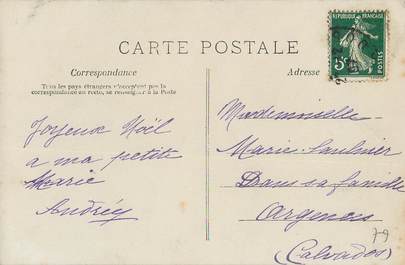 CARTE POSTALE
Correspondance
Tous les pays étrangers n'acceptent pas la
correspondance au recto, se renseigner à la Poste
Joyeux Noël
a ma petite
Marie
Andrée
Adresse
REPUBLIQUE FRANÇAISE
5c
POSTES
Mademoiselle
Marie Saulnier
Dans sa famille
Argences
(Calvados)
79